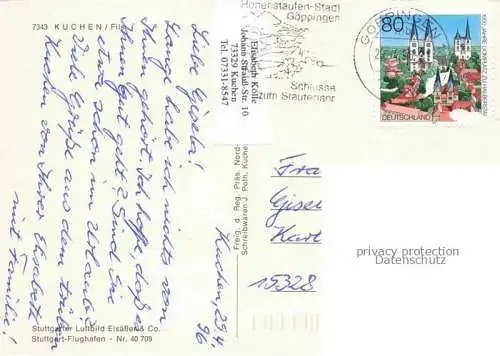 7343 KUCHEN / Fils
Liebe Gisela!
Lange habe ich nichts von
Ihnen gehört. Ich hoffe, daß es
Ihnen gut geht? Sind Sie
etwa schon im Urlaub?
Viele Grüße aus dem trüben
Kuchen von Ihrer Elisabeth
mit Familie!
Kuchen, 29.4.
96
Elisabeth Kölle
Johann-Strauß-Str. 10
73329 Kuchen
Tel. 07331-8547
Hohenstaufen-Stadt
Göppingen
Schlüssel
zum Stauferland
GÖPPINGEN
80
1000 JAHRE DOMPLATZ ZU HALBERSTADT
DEUTSCHLAND
Frau
Gisel
Karl
15328
privacy protection
Datenschutz
Freig. d. Reg. Präs. Nord-
Schreibwaren J. Poth, Kuchen
Stuttgarter Luftbild Elsäßer & Co.
Stuttgart-Flughafen - Nr. 40 709